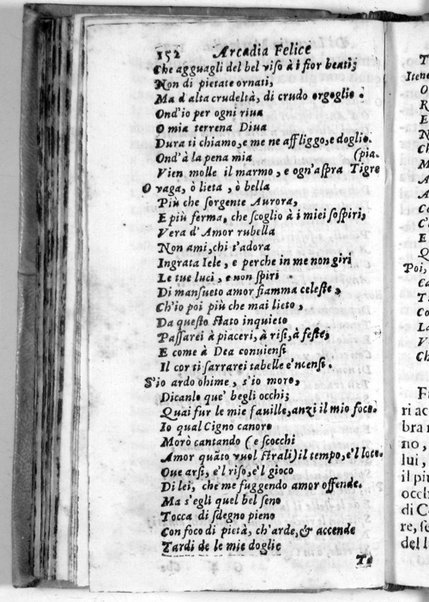 152 Arcadia Felice
Che agguagli del bel viso à i fior beati;
Non di pietate ornati,
Ma d'alta crudeltà, di crudo orgoglio.
Ond'io per ogni riua
O mia terrena Diua
Dura ti chiamo, e me ne affliggo, e doglio.
Ond'à la pena mia (pia.
Vien molle il marmo, e ogn'aspra Tigre
O vaga, ò lieta, ò bella
Più che sorgente Aurora,
E più ferma, che scoglio à i miei sospiri,
Vera d'Amor rubella
Non ami, chi s'adora
Ingrata Iele, e perche in me non giri
Le tue luci, e non spiri
Di mansueto amor fiamma celeste,
Ch'io poi più che mai lieto,
Da questo stato inquieto
Passarei à piaceri, à risi, à feste,
E come à Dea conuiensi
Il cor ti sarrarei tabelle e'ncensi.
S'io ardo ohime, s'io moro,
Dicanlo que' begli occhi;
Quai fur le mie fauille, anzi il mio foco.
Io qual Cigno canoro
Morò cantando (e scocchi
Amor quāto vuol strali) il tempo, e'l loco.
Oue arsi, e'l riso, e'l gioco
Di lei, che me fuggendo amor offende.
Ma s'egli quel bel seno
Tocca di sdegno pieno
Con foco di pietà, ch'arde, & accende
Tardi de le mie doglie